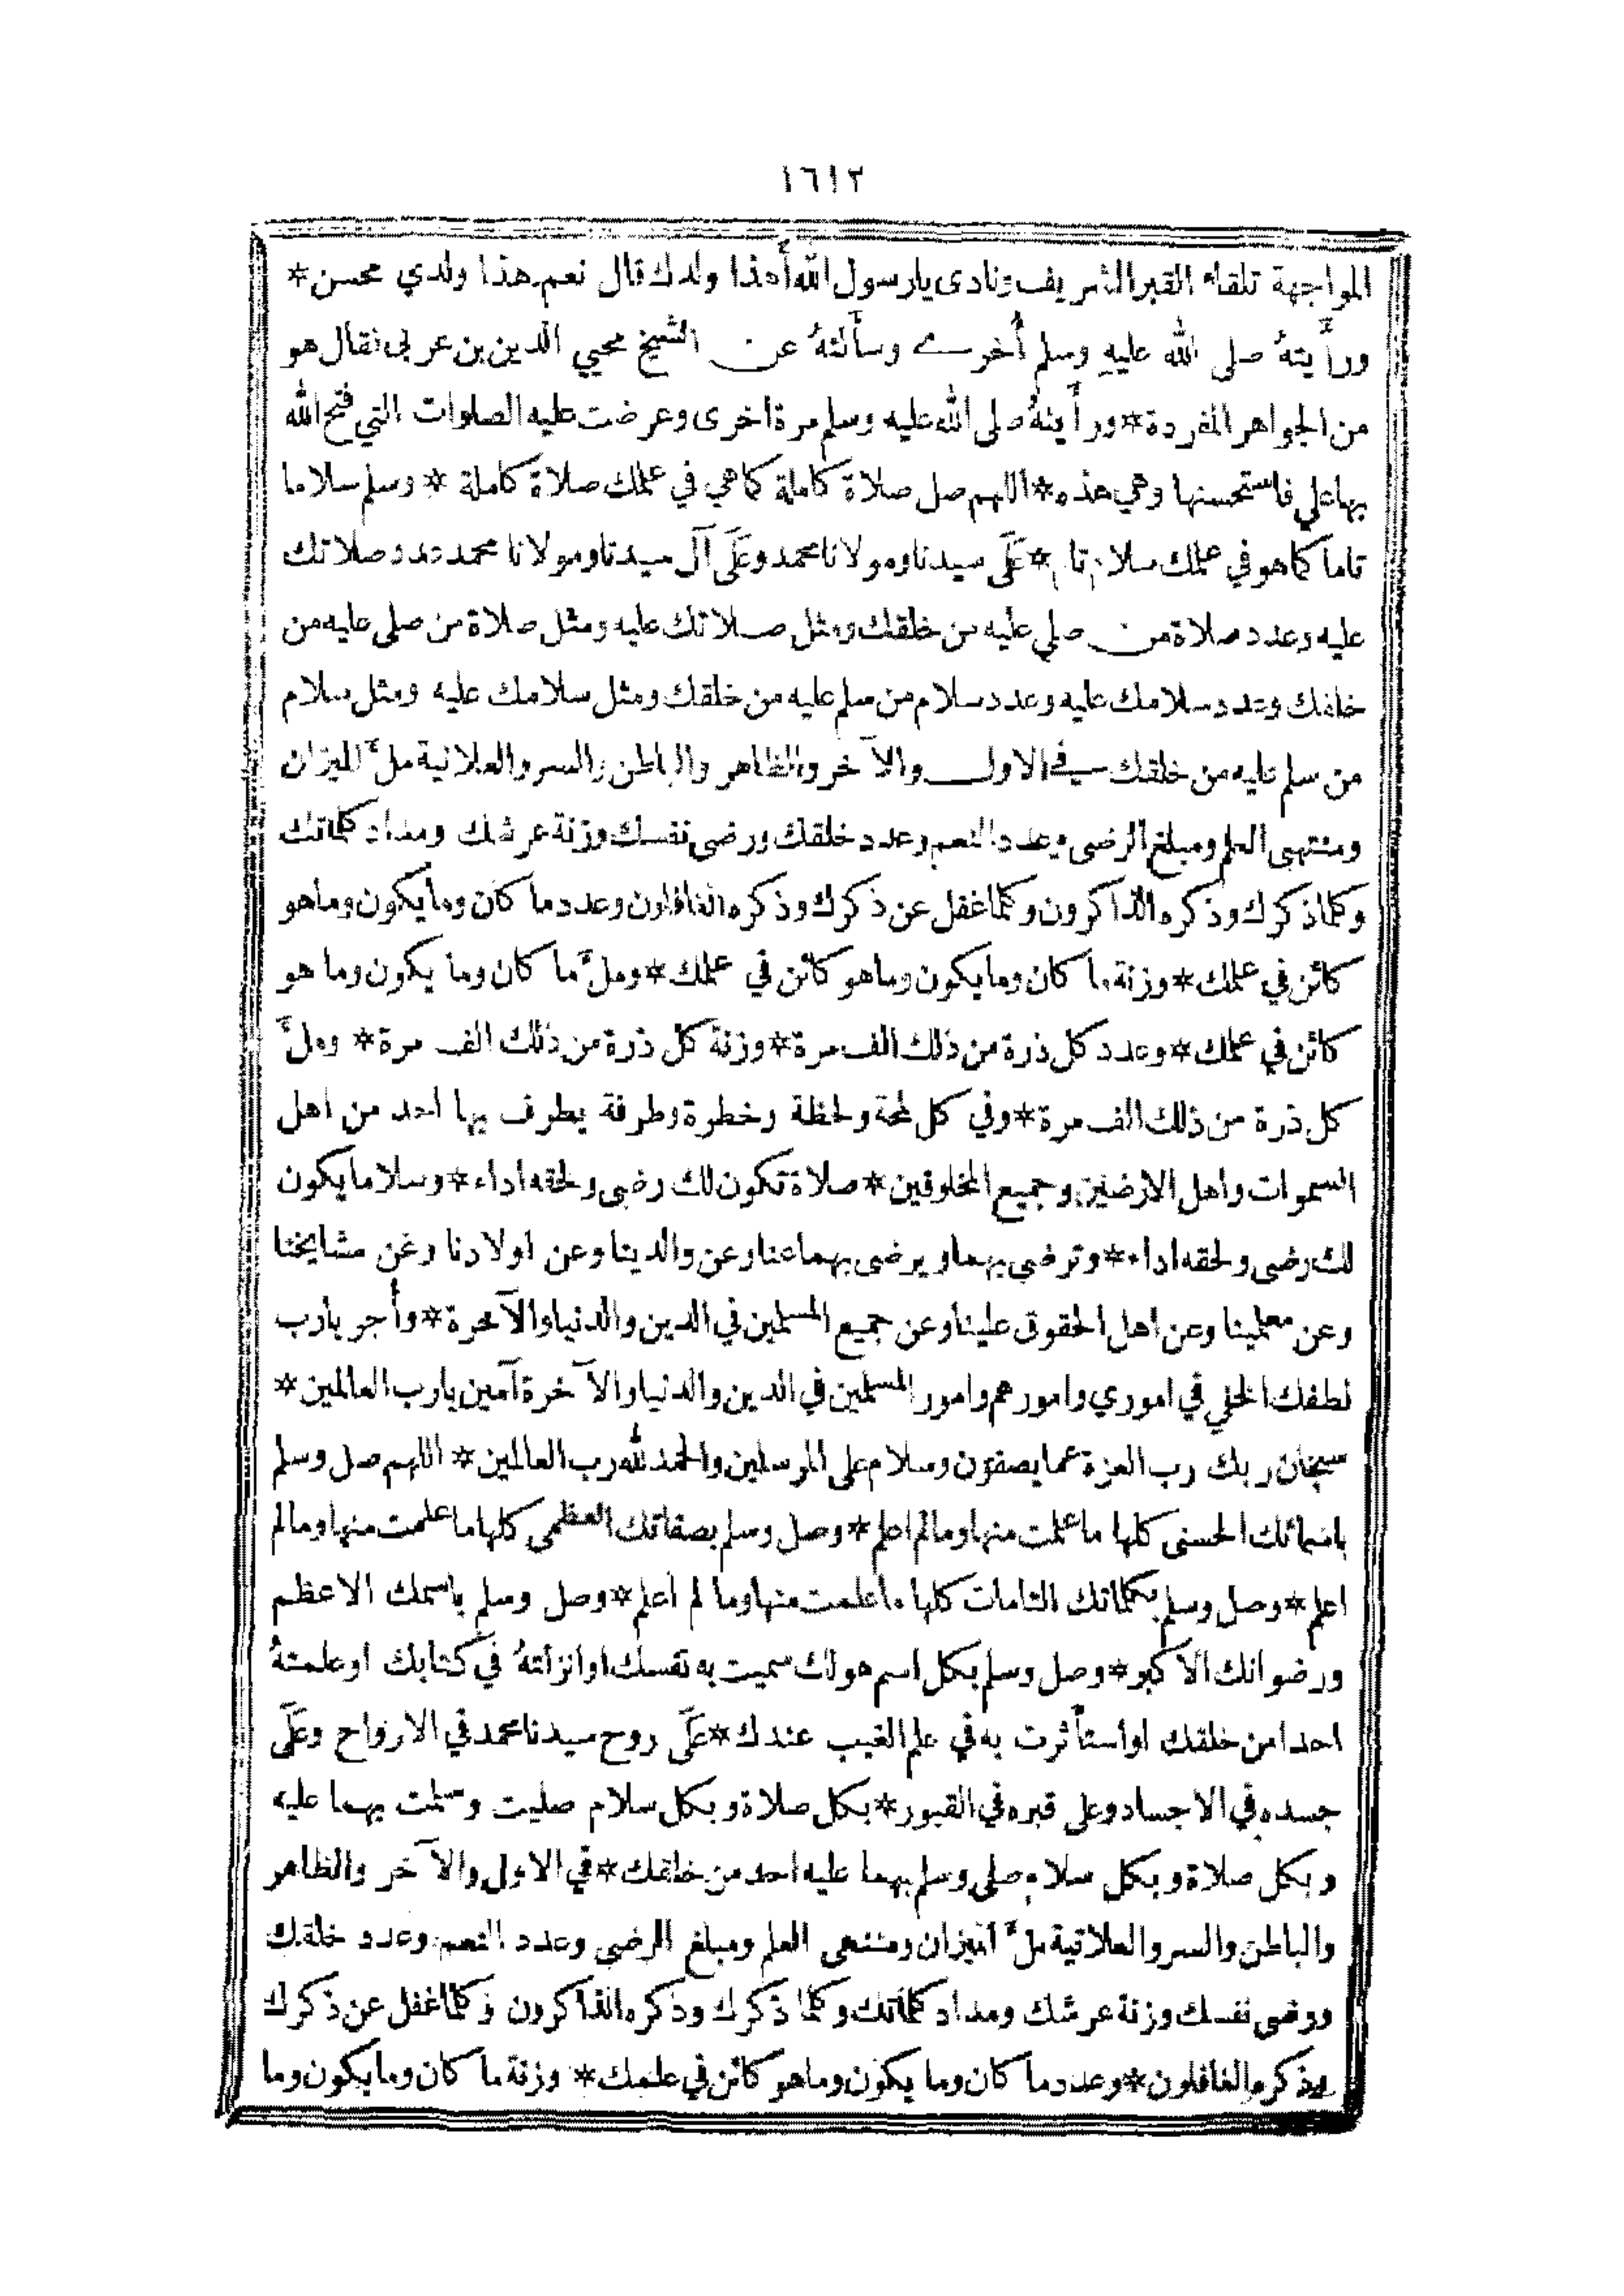 ١٦١٢
المواجهة تلقاء القبر الشريف ونادى يا رسول الله أهذا ولدك قال نعم هذا ولدي محسن *
ورأيتهُ صلى الله عليهِ وسلم أُخرى وسألتهُ عن الشيخ محيي الدين بن عربي فقال هو
من الجواهر المفردة * ورأيتهُ صلى الله عليه وسلم مرة اخرى وعرضت عليه الصلوات التي فتح الله
بها علي فاستحسنها وهي هذه * اللهم صل صلاة كاملة كما هي في علمك صلاة كاملة * وسلم سلاما
تاما كما هو في علمك سلام تام * عَلَى سيدنا ومولانا محمد وعَلَى آل سيدنا ومولانا محمد عدد صلاتك
عليه وعدد صلاة من صلي عليه من خلقك ومثل صلاتك عليه ومثل صلاة من صلى عليه من
خلقك وعدد سلامك عليه وعدد سلام من سلم عليه من خلقك ومثل سلامك عليه ومثل سلام
من سلم عليه من خلقك في الاول والآخر والظاهر والباطن والسر والعلانية ملءَ الميزان
ومنتهى العلم ومبلغ الرضى وعدد النعم وعدد خلقك ورضى نفسك وزنة عرشك ومداد كلماتك
وكلما ذكرك وذكره الذاكرون وكلما غفل عن ذكرك وذكره الغافلون وعدد ما كان وما يكون وما هو
كائن في علمك * وزنة ما كان وما يكون وما هو كائن في علمك * وملءَ ما كان وما يكون وما هو
كائن في علمك * وعدد كل ذرة من ذلك الف مرة * وزنة كل ذرة من ذلك الف مرة * وملءَ
كل ذرة من ذلك الف مرة * وفي كل لمحة ولحظة وخطرة وطرفة يطرف بها احد من اهل
السموات واهل الارضين وجميع المخلوقين * صلاة تكون لك رضى ولحقه اداء * وسلاما يكون
لك رضى ولحقه اداء * وترضي بهما ويرضى بهما عنا وعن والدينا وعن اولادنا وعن مشايخنا
وعن معلمينا وعن اهل الحقوق علينا وعن جميع المسلمين في الدين والدنيا والآخرة * وأجر يارب
لطفك الخفي في اموري وامورهم وامور المسلمين في الدين والدنيا والآخرة آمين يارب العالمين *
سبحان ربك رب العزة عما يصفون وسلام على المرسلين والحمد لله رب العالمين * اللهم صل وسلم
باسمائك الحسنى كلها ما علمت منها وما لم اعلم * وصل وسلم بصفاتك العظمى كلها ما علمت منها وما لم
اعلم * وصل وسلم بكلماتك التامات كلها ما علمت منها وما لم اعلم * وصل وسلم باسمك الاعظم
ورضوانك الاكبر * وصل وسلم بكل اسم هو لك سميت به نفسك او انزلتهُ في كتابك او علمتهُ
احدا من خلقك او استأثرت به في علم الغيب عندك * عَلَى روح سيدنا محمد في الارواح وعَلَى
جسده في الاجساد وعلى قبره في القبور * بكل صلاة وبكل سلام صليت وسلمت بهما عليه
وبكل صلاة وبكل سلام صلى وسلم بهما عليه احد من خلقك * في الاول والآخر والظاهر
والباطن والسر والعلانية ملءَ الميزان ومنتهى العلم ومبلغ الرضى وعدد النعم وعدد خلقك
ورضى نفسك وزنة عرشك ومداد كلماتك وكلما ذكرك وذكره الذاكرون وكلما غفل عن ذكرك
وذكره الغافلون * وعدد ما كان وما يكون وما هو كائن في علمك * وزنة ما كان وما يكون وما